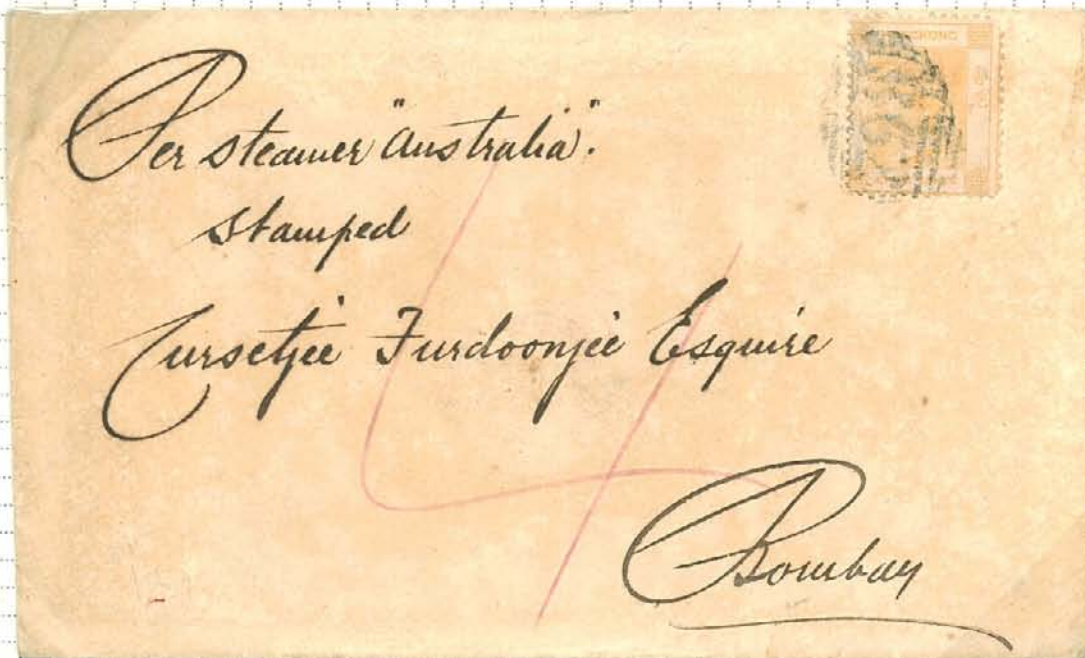 HONG KONG
Per steamer "Australia".
Stamped
Cursetjee Furdoonjee Esquire
4
Bombay